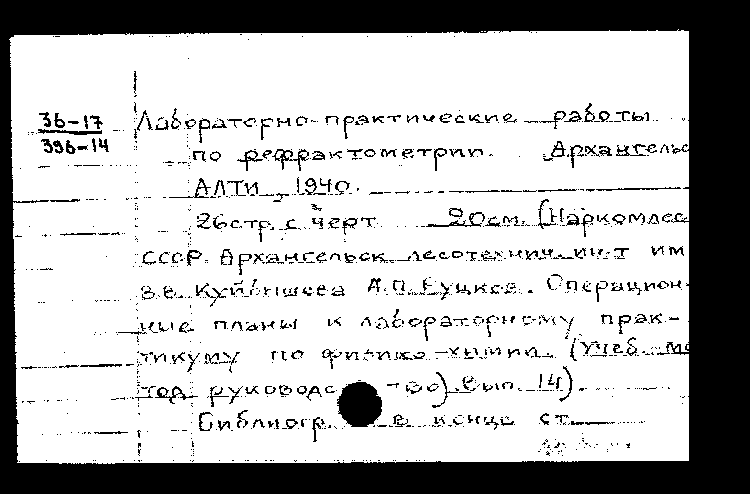 36-17
396-14
Лабораторно-практические работы
по рефрактометрии. Архангельс
АЛТИ, 1940.
26стр. с черт 20см. (Наркомлес
СССР. Архангельск лесотехнич. ин.т им
В.В. Куйбышева А.П. Буцков. Операцион-
ные планы к лабораторному прак-
тикуму по физико-химии. (Учеб. ме
тод руководс -во). Вып. 14).
Библиогр. в конце ст.